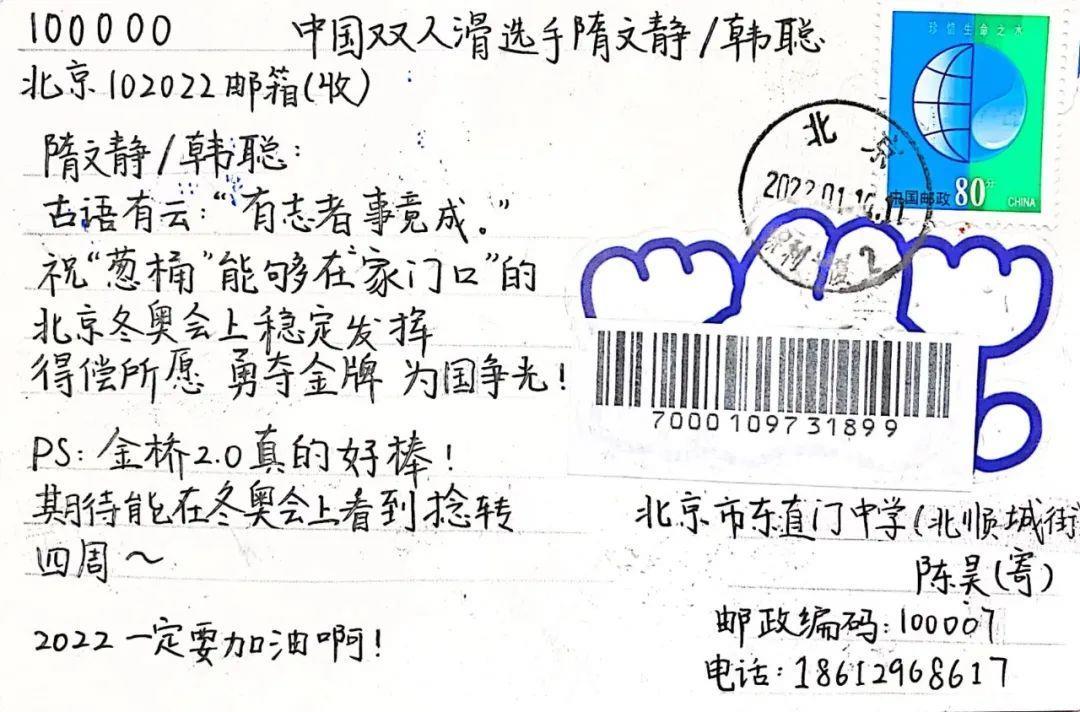 100000
中国双人滑选手隋文静/韩聪
北京102022邮箱(收)
隋文静/韩聪:
古语有云:“有志者事竟成。”
祝“葱桶”能够在“家门口”的
北京冬奥会上稳定发挥
得偿所愿 勇夺金牌 为国争光!
PS: 金桥2.0真的好棒!
期待能在冬奥会上看到捻转
四周~
2022一定要加油啊!
珍惜生命之水
中国邮政 80分 CHINA
北京
2022.01.16.11
2
7000109731899
北京市东直门中学(北顺城街)
陈昊(寄)
邮政编码:100007
电话:18612968617